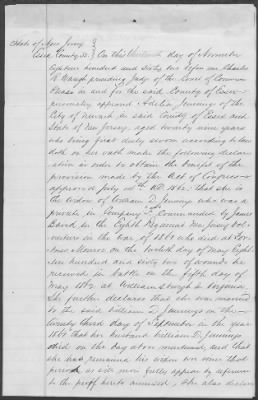 State of New Jersey
Essex County SS. On this thirteenth day of November
Eighteen hundred and sixty two before me Charles
R. Waugh presiding Judge of the Court of Common
Pleas in and for the said County of Essex
personally appeared Adelia Jennings of the
City of Newark in said County of Essex and
State of New Jersey, aged twenty nine years
who being first duly sworn according to law
doth on her oath make the following declar
ation in order to obtain the benefit of the
provision made by the Act of Congress
approved July 14th A.D. 1862: that she is
the widow of William D. Jennings who was a
private in Company Commanded by James
in the Eighth Regiment New Jersey Vol
unteers in the war of 1861 who died at For
tress Monroe on the tenth day of May Eigh
teen hundred and sixty two of wounds he
received in battle on the fifth day of
May 1862 at Williamsburgh in Virginia
She further declares that she was married
to the said William D. Jennings on the
twenty third day of September in the year
that her husband William D. Jennings
died on the day above mentioned, and that
she has remained his widow ever since that
period as will more fully appear by reference
to the proof hereto annexed, She also declares